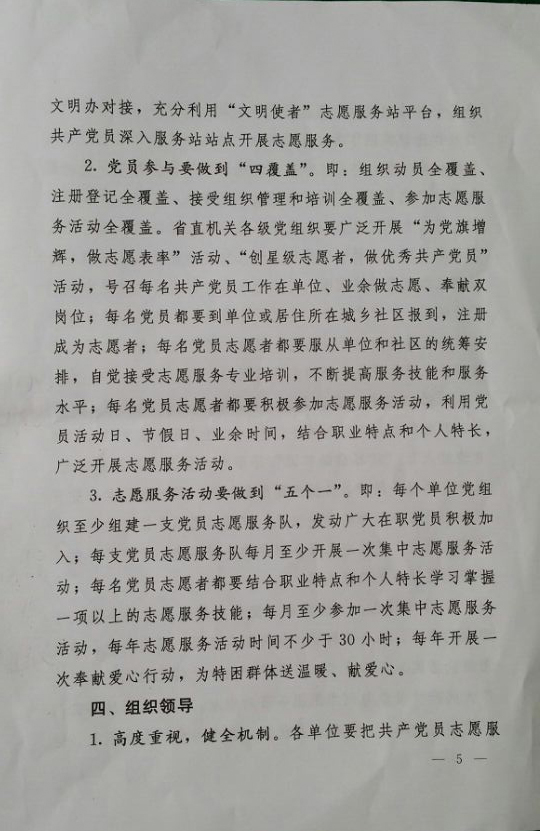 文明办对接，充分利用“文明使者”志愿服务站平台，组织
共产党员深入服务站站点开展志愿服务。
2. 党员参与要做到“四覆盖”。即：组织动员全覆盖、
注册登记全覆盖、接受组织管理和培训全覆盖、参加志愿服
务活动全覆盖。省直机关各级党组织要广泛开展“为党旗增
辉，做志愿表率”活动、“创星级志愿者，做优秀共产党员”
活动，号召每名共产党员工作在单位、业余做志愿、奉献双
岗位；每名党员都要到单位或居住所在城乡社区报到，注册
成为志愿者；每名党员志愿者都要服从单位和社区的统筹安
排，自觉接受志愿服务专业培训，不断提高服务技能和服务
水平；每名党员志愿者都要积极参加志愿服务活动，利用党
员活动日、节假日、业余时间，结合职业特点和个人特长，
广泛开展志愿服务活动。
3. 志愿服务活动要做到“五个一”。即：每个单位党组
织至少组建一支党员志愿服务队，发动广大在职党员积极加
入；每支党员志愿服务队每月至少开展一次集中志愿服务活
动；每名党员志愿者都要结合职业特点和个人特长学习掌握
一项以上的志愿服务技能；每月至少参加一次集中志愿服务
活动，每年志愿服务活动时间不少于 30 小时；每年开展一
次奉献爱心行动，为特困群体送温暖、献爱心。
四、组织领导
1. 高度重视，健全机制。各单位要把共产党员志愿服
— 5 —